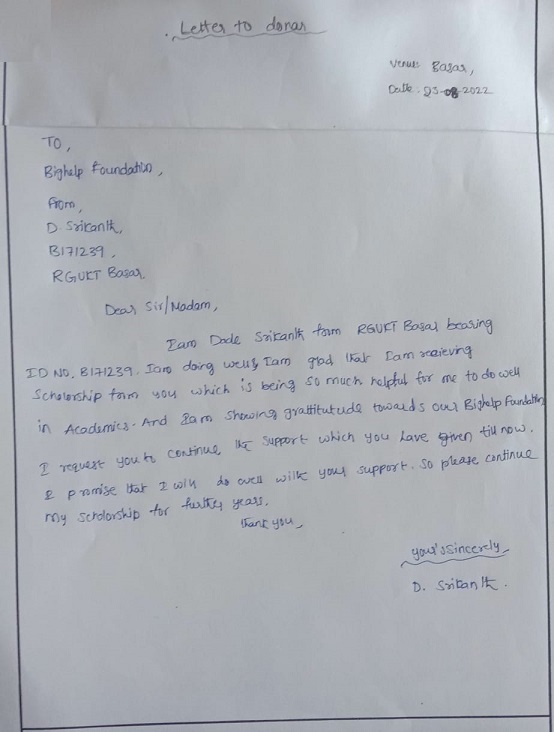 Letter to donar
Venue: Basar,
Date: 23-08-2022
TO,
Bighelp Foundation,
From,
D. Srikanth,
B171239,
RGUKT Basar.
Dear Sir/Madam,
Iam Dade Srikanth form RGUKT Basar bearing
ID NO. B171239. Iam doing well & Iam glad that Iam recieving
Scholorship form you which is being so much helpful for me to do well
in Academics. And Iam showing grattitutude towards our Bighelp Foundation
I request you to continue the support which you have given till now.
I promise that I will do well with your support. So please continue
my scholorship for further years.
Thank you,
your's sincerely,
D. Srikanth.